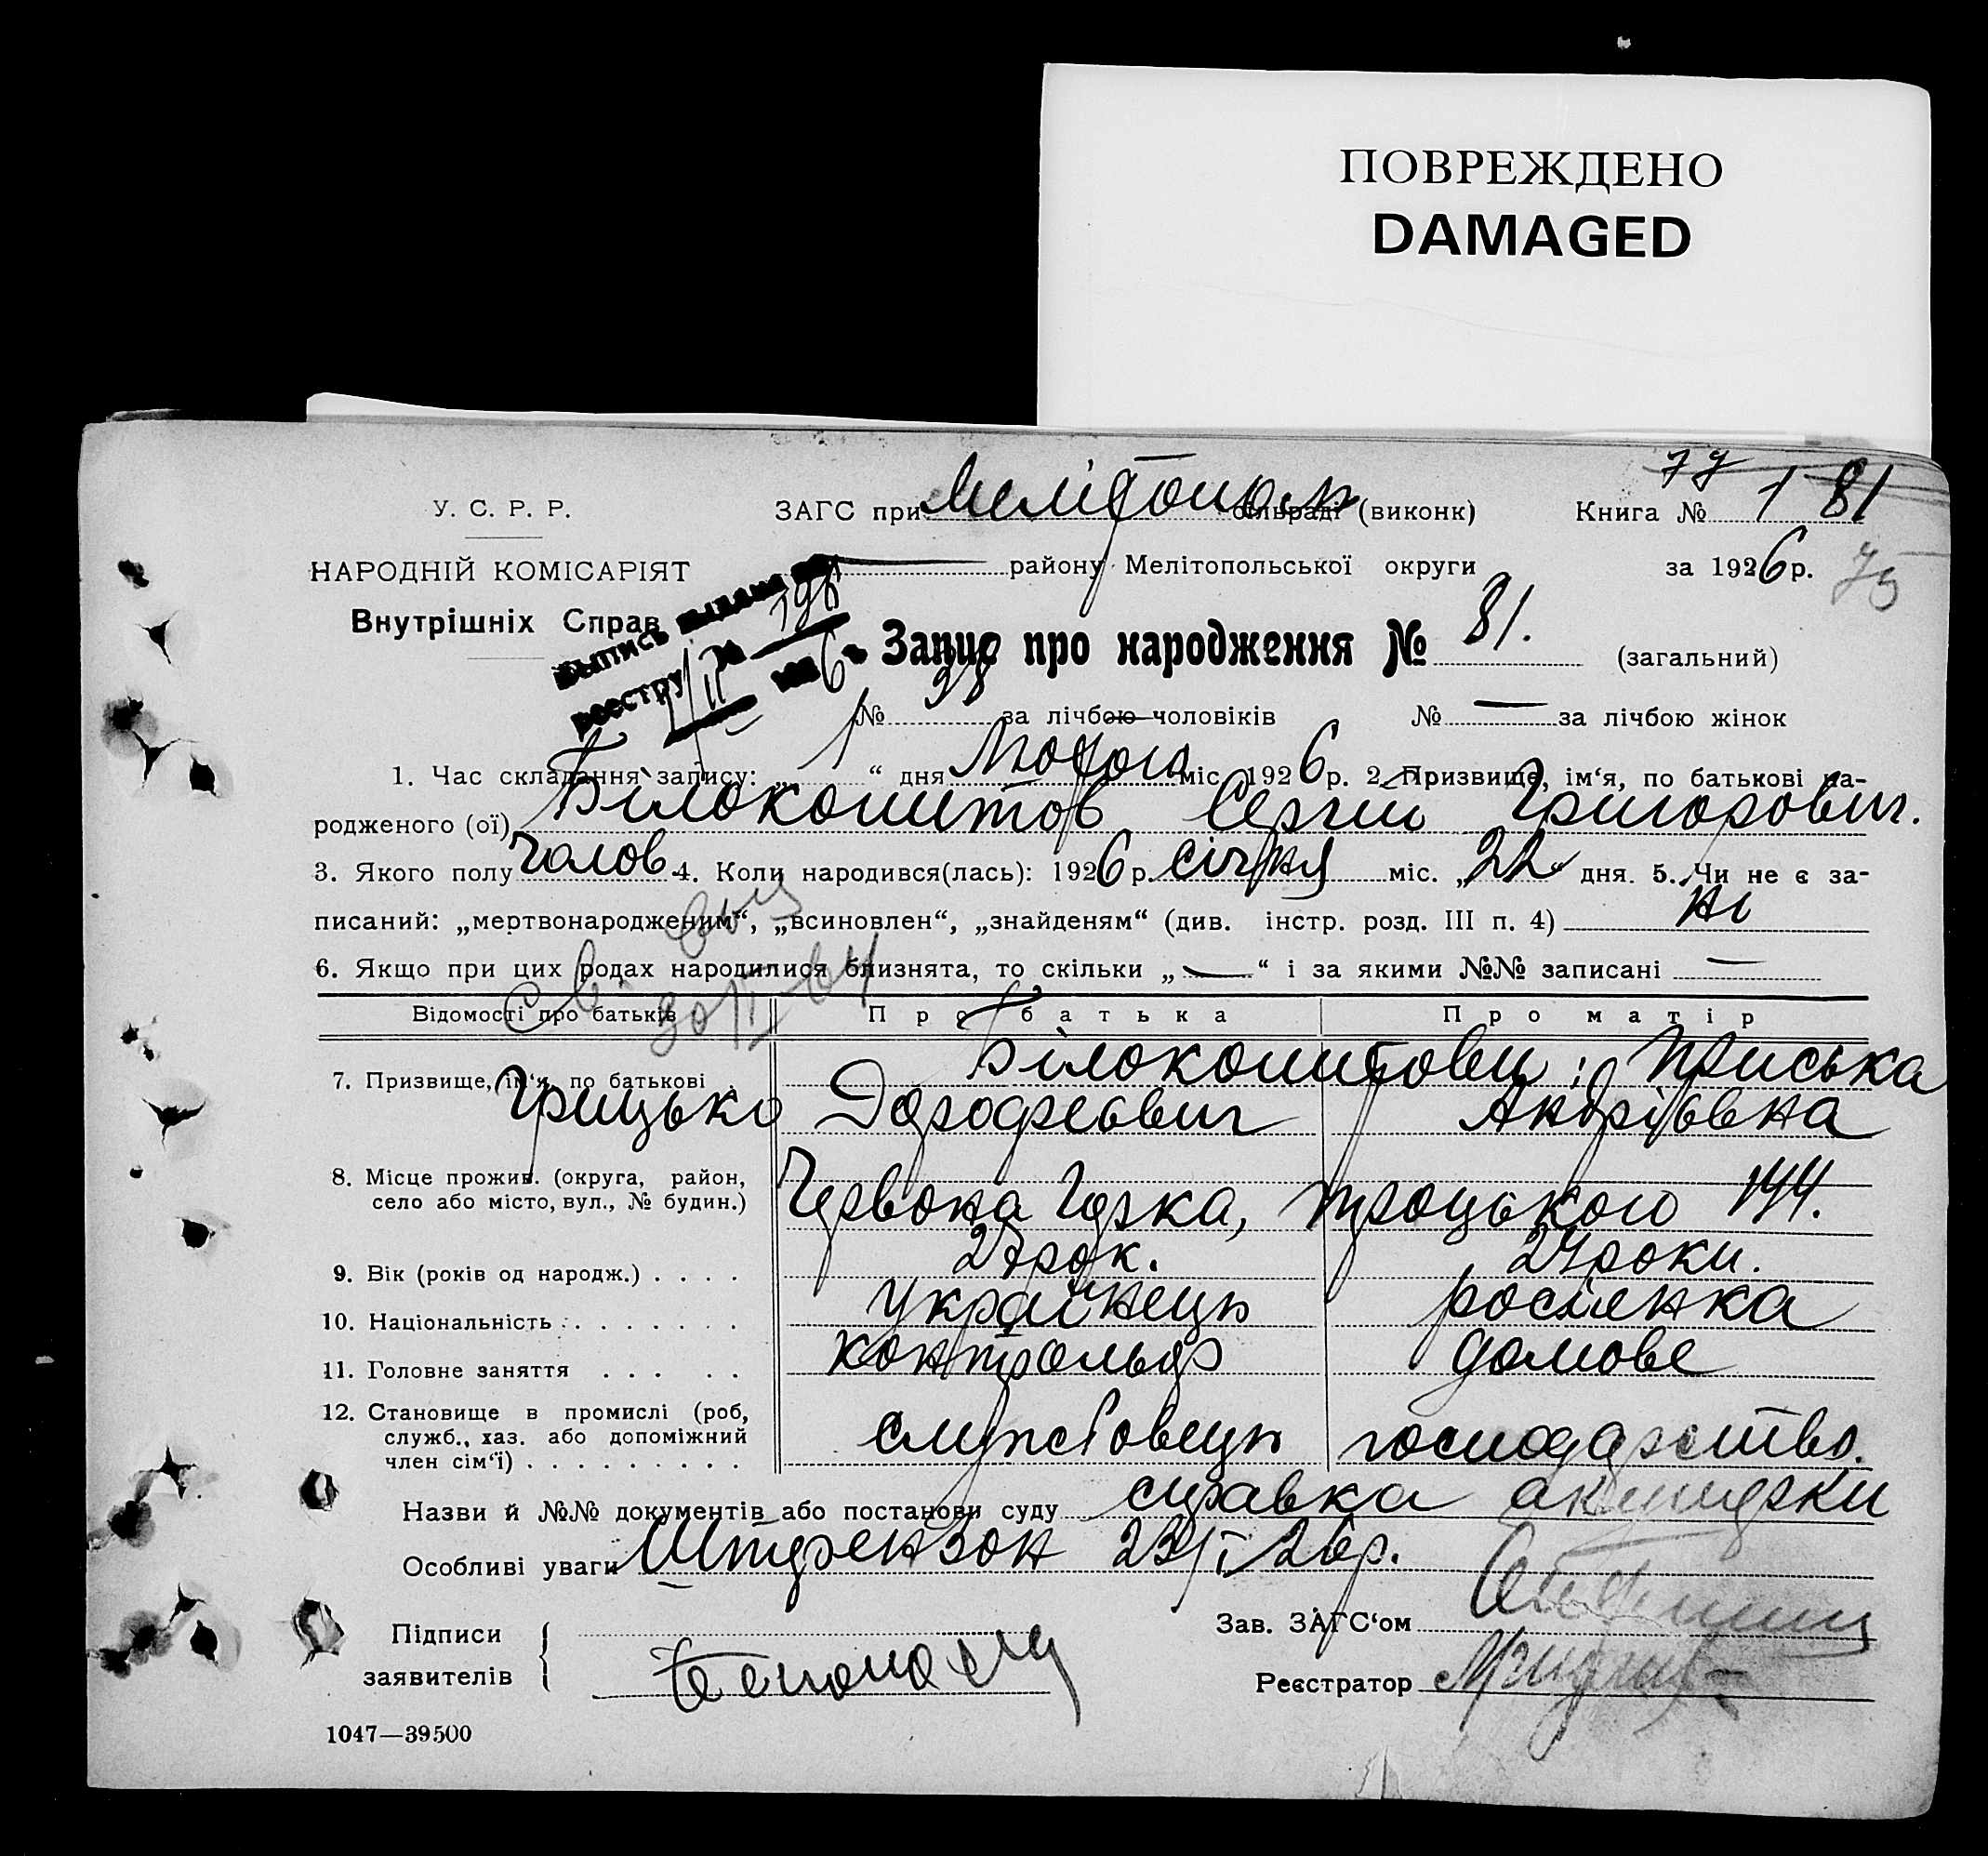 ПОВРЕЖДЕНО
DAMAGED
77
У. С. Р. Р. ЗАГС при Мелітополь сільраді (виконк) Книга № 1 81
НАРОДНІЙ КОМІСАРІЯТ району Мелітопольської округи за 1926 р. 75
Внутрішніх Справ
Выпись выдана
реестру №
Запис про народження № 81. (загальний)
№ 38 за лічбою чоловіків № — за лічбою жінок
1. Час складання запису: „ 1 “ дня Лютого міс. 1926 р. 2. Призвище, ім‘я, по батькові на-
родженого (ої) Білокопитов Сергій Григорович.
3. Якого полу чолов. 4. Коли народився(лась): 1926 р. січня міс. „ 22 “ дня. 5. Чи не є за-
писаний: „мертвонародженим“, „всиновлен“, „знайденям“ (див. інстр. розд. III п. 4) ні
6. Якщо при цих родах народилися близнята, то скільки „ — “ і за якими №№ записані —
Відомості про батьків Про батька Про матір
7. Призвище, ім‘я, по батькові . Білокопитовы: Приська
Грицько Дорофеевич Андріївна
8. Місце прожив. (округа, район,
село або місто, вул., № будин.) Червона Гірка, Троцького 144.
9. Вік (років од народж.) . . . . 27 рок. 24 роки.
10. Національність . . . . . . . . українець росіянка
11. Головне заняття . . . . . контрольор домове
12. Становище в промислі (роб,
служб., хаз. або допоміжний
член сім‘ї) . . . . . . . . . службовець господарство.
Назви й №№ документів або постанови суду справка акушерки
Особливі уваги Штерензон 23/I 26 р.
Підписи
заявителів
Зав. ЗАГС‘ом
Реєстратор
1047—39500